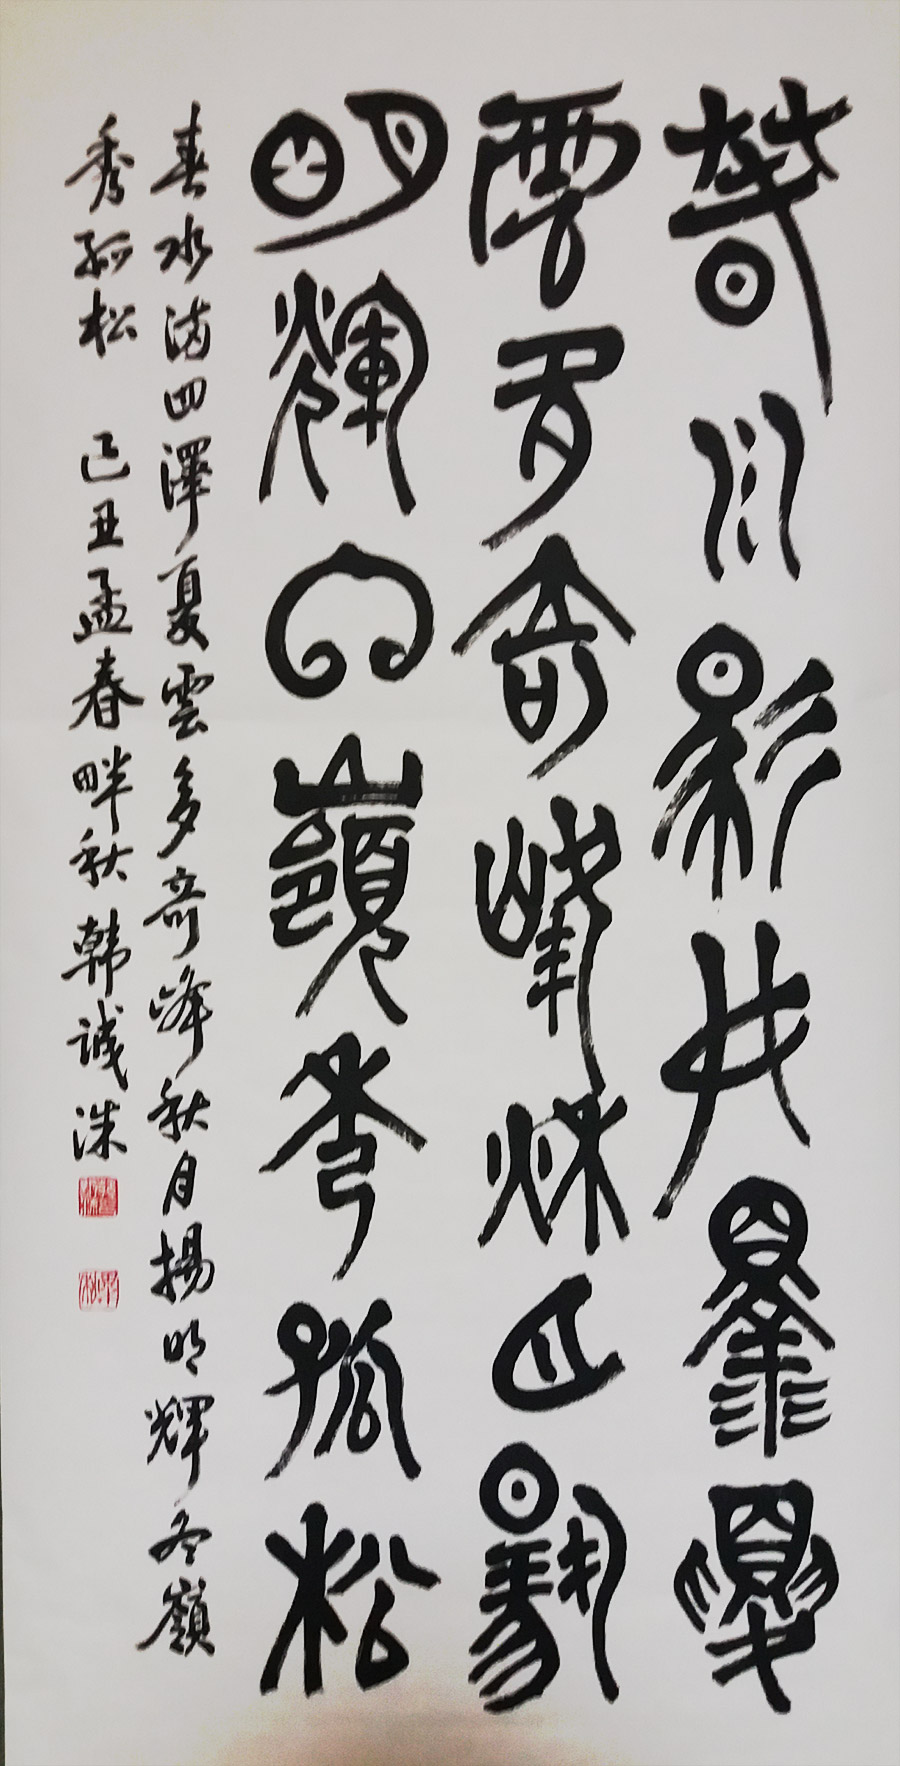 春水滿四澤夏
雲多奇峰秋月揚
明輝冬嶺秀孤松
春水滿四澤夏雲多奇峰秋月揚明輝冬嶺
秀孤松 己丑孟春畔秋韩誠洙